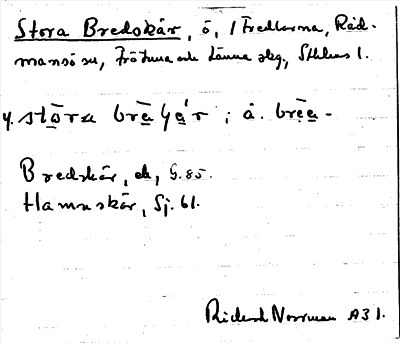 Stora Bredskär, ö, i Fredlarna, Råd-
mansö sn, Frötuna och Länna slg, Sthlms l.
y. stōra brēa
Bredskär, ek, G. 85.
Hamnskär, Sj. 61.
Richard Norrman A31.